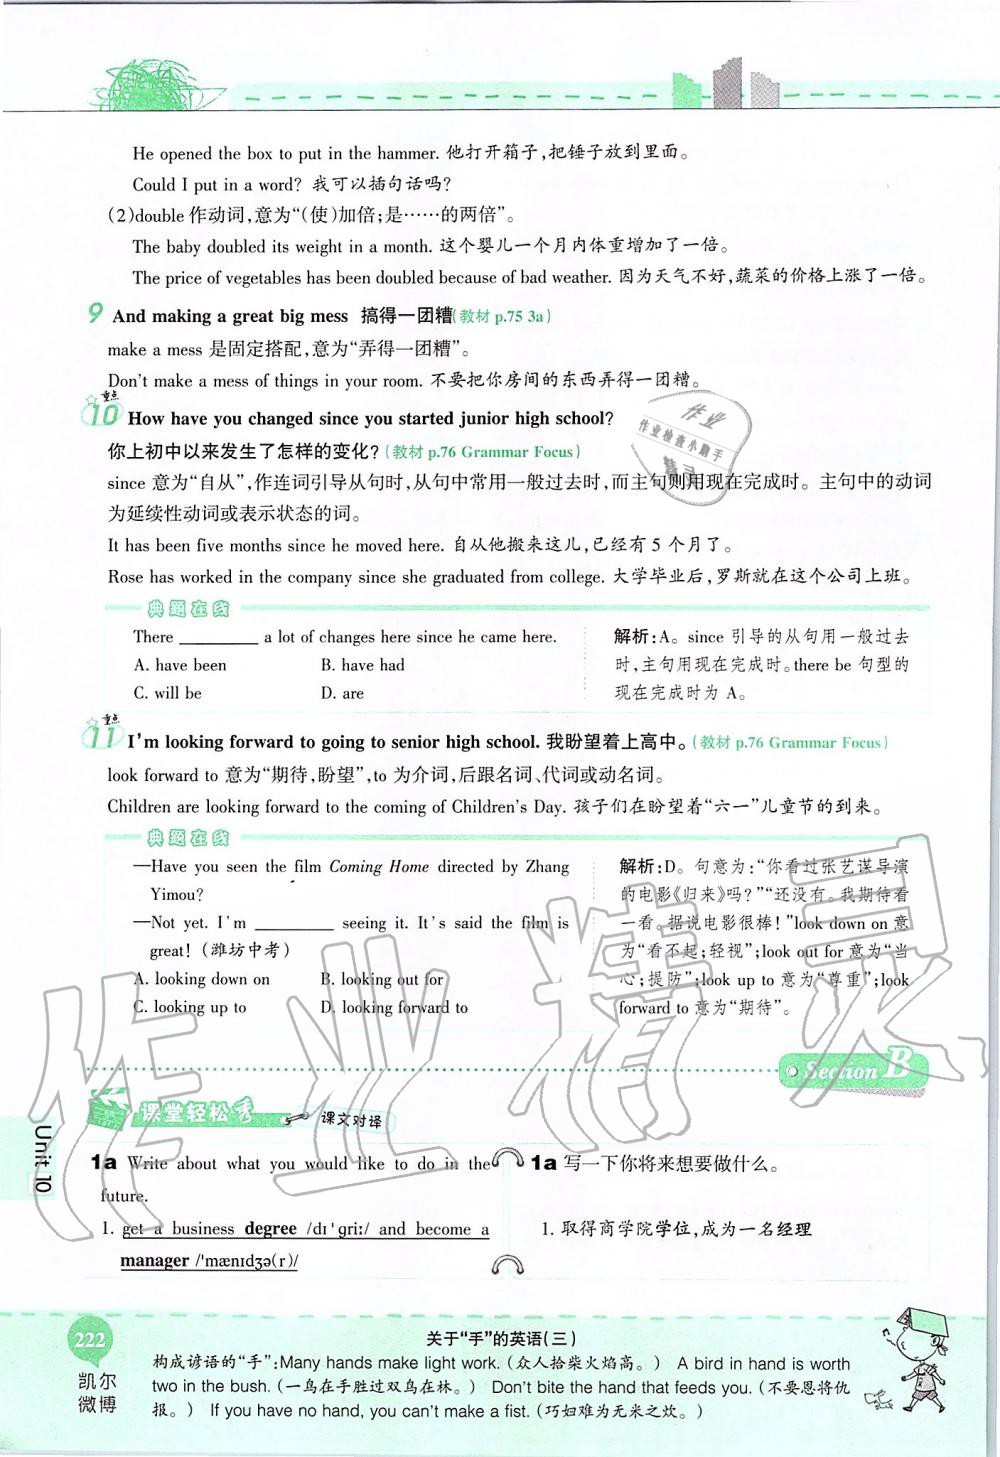 He opened the box to put in the hammer. 他打开箱子,把锤子放到里面。
Could I put in a word? 我可以插句话吗?
(2)double 作动词,意为“(使)加倍;是……的两倍”。
The baby doubled its weight in a month. 这个婴儿一个月内体重增加了一倍。
The price of vegetables has been doubled because of bad weather. 因为天气不好,蔬菜的价格上涨了一倍。
9 And making a great big mess 搞得一团糟(教材 p.75 3a)
make a mess 是固定搭配,意为“弄得一团糟”。
Don't make a mess of things in your room. 不要把你房间的东西弄得一团糟。
重点
10 How have you changed since you started junior high school?
你上初中以来发生了怎样的变化?(教材 p.76 Grammar Focus)
since 意为“自从”,作连词引导从句时,从句中常用一般过去时,而主句则用现在完成时。主句中的动词
为延续性动词或表示状态的词。
It has been five months since he moved here. 自从他搬来这儿,已经有 5 个月了。
Rose has worked in the company since she graduated from college. 大学毕业后,罗斯就在这个公司上班。
典题在线
There ________ a lot of changes here since he came here.
A. have been B. have had
C. will be D. are
解析:A。since 引导的从句用一般过去
时,主句用现在完成时。there be 句型的
现在完成时为 A。
重点
11 I'm looking forward to going to senior high school. 我盼望着上高中。(教材 p.76 Grammar Focus)
look forward to 意为“期待,盼望”,to 为介词,后跟名词、代词或动名词。
Children are looking forward to the coming of Children's Day. 孩子们在盼望着“六一”儿童节的到来。
典题在线
—Have you seen the film Coming Home directed by Zhang
Yimou?
—Not yet. I'm ________ seeing it. It's said the film is
great!(潍坊中考)
A. looking down on B. looking out for
C. looking up to D. looking forward to
解析:D。句意为:“你看过张艺谋导演
的电影《归来》吗?”“还没有。我期待看
一看。据说电影很棒!”look down on 意
为“看不起;轻视”;look out for 意为“当
心;提防”;look up to 意为“尊重”;look
forward to 意为“期待”。
Section B
课堂轻松秀 课文对译
1a Write about what you would like to do in the
future.
1. get a business degree /dɪˈɡriː/ and become a
manager /ˈmænɪdʒə(r)/
1a 写一下你将来想要做什么。
1. 取得商学院学位,成为一名经理
Unit 10
222
凯尔
微博
关于“手”的英语(三)
构成谚语的“手”:Many hands make light work.(众人拾柴火焰高。) A bird in hand is worth
two in the bush.(一鸟在手胜过双鸟在林。) Don't bite the hand that feeds you.(不要恩将仇
报。) If you have no hand, you can't make a fist.(巧妇难为无米之炊。)
作业
作业检查小助手
精灵
作业精灵